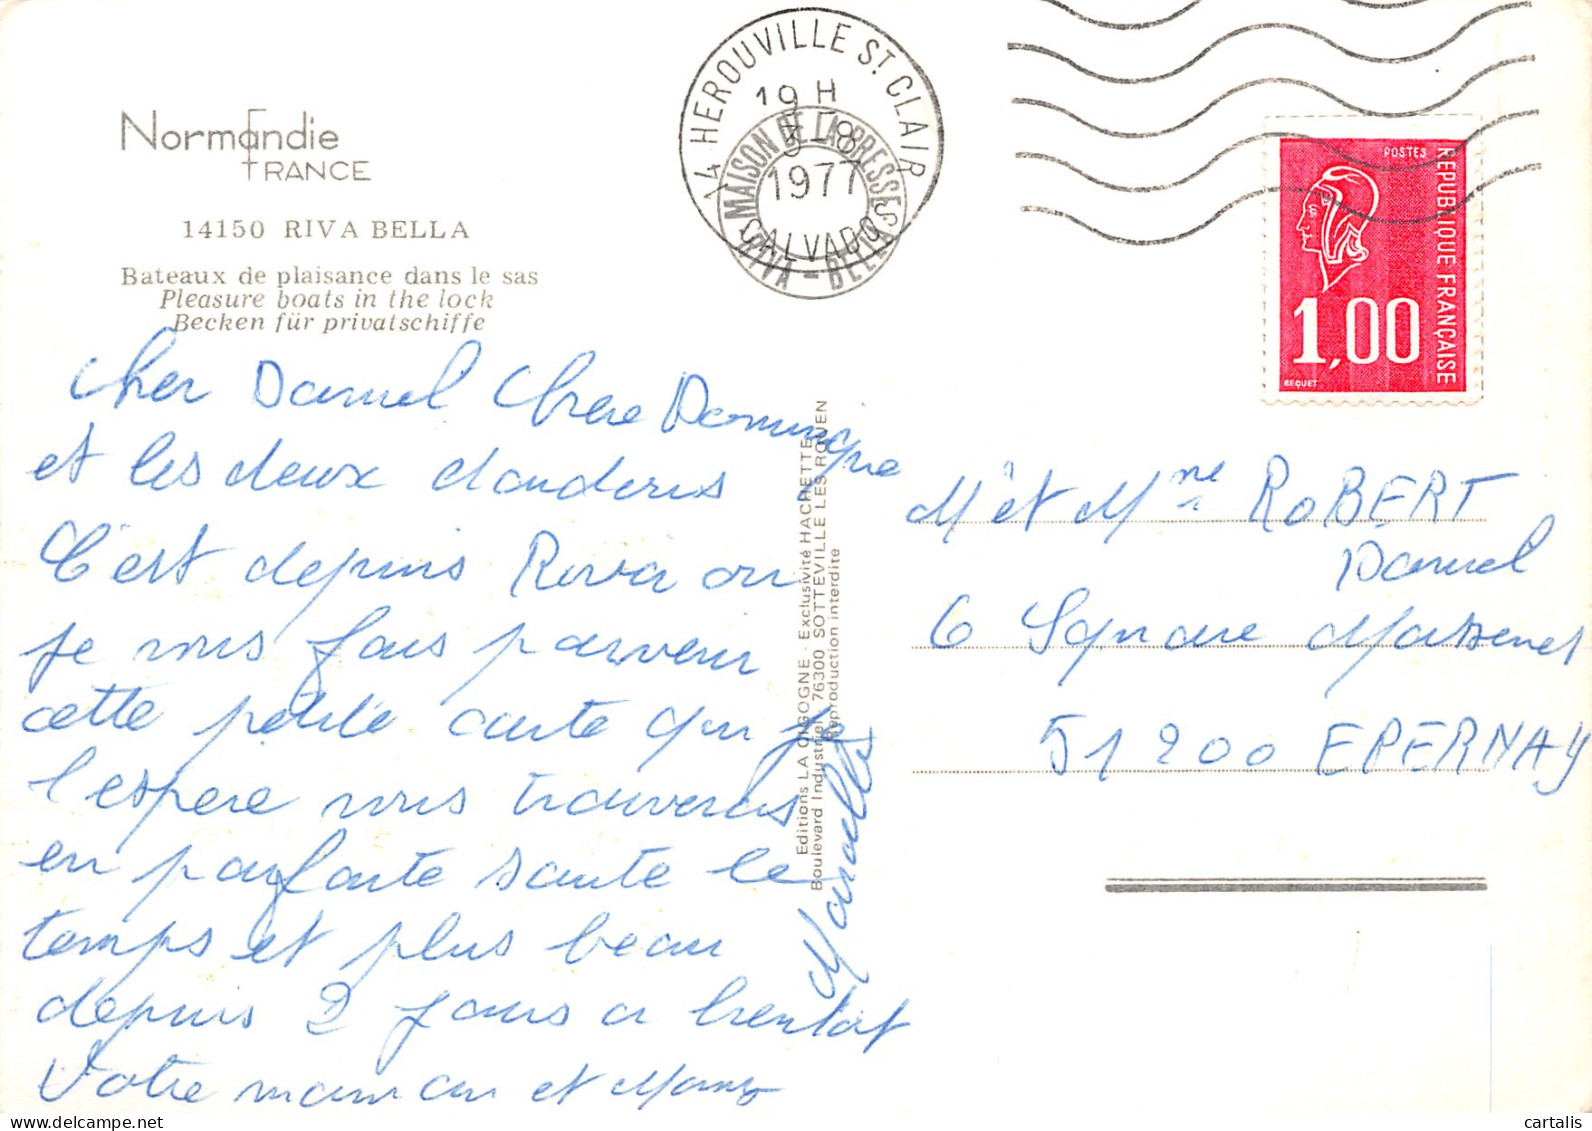 Normandie
FRANCE
14150 RIVA BELLA
Bateaux de plaisance dans le sas
Pleasure boats in the lock
Becken für privatschiffe
Cher Daniel Chère Dominique
et les deux
C'est depuis Riva ou
je vous fais parvenir
cette petite carte qui je
l'espere vous trouveras
en parfaite santé le
temps et plus beau
depuis 2 jours a bientot
Votre maman et
Marcelle
Editions LA CIGOGNE - Exclusivité HACHETTE
Boulevard Industriel 76300 SOTTEVILLE LES ROUEN
Reproduction interdite
14 HEROUVILLE ST CLAIR
19 H
3-8
1977
CALVADOS
MAISON DE LA BRESSE
RIVA - BELLA
POSTES
REPUBLIQUE FRANÇAISE
1,00
BEQUET
M et Mme ROBERT
Daniel
6 Square Massenet
51200 EPERNAY
cartalis